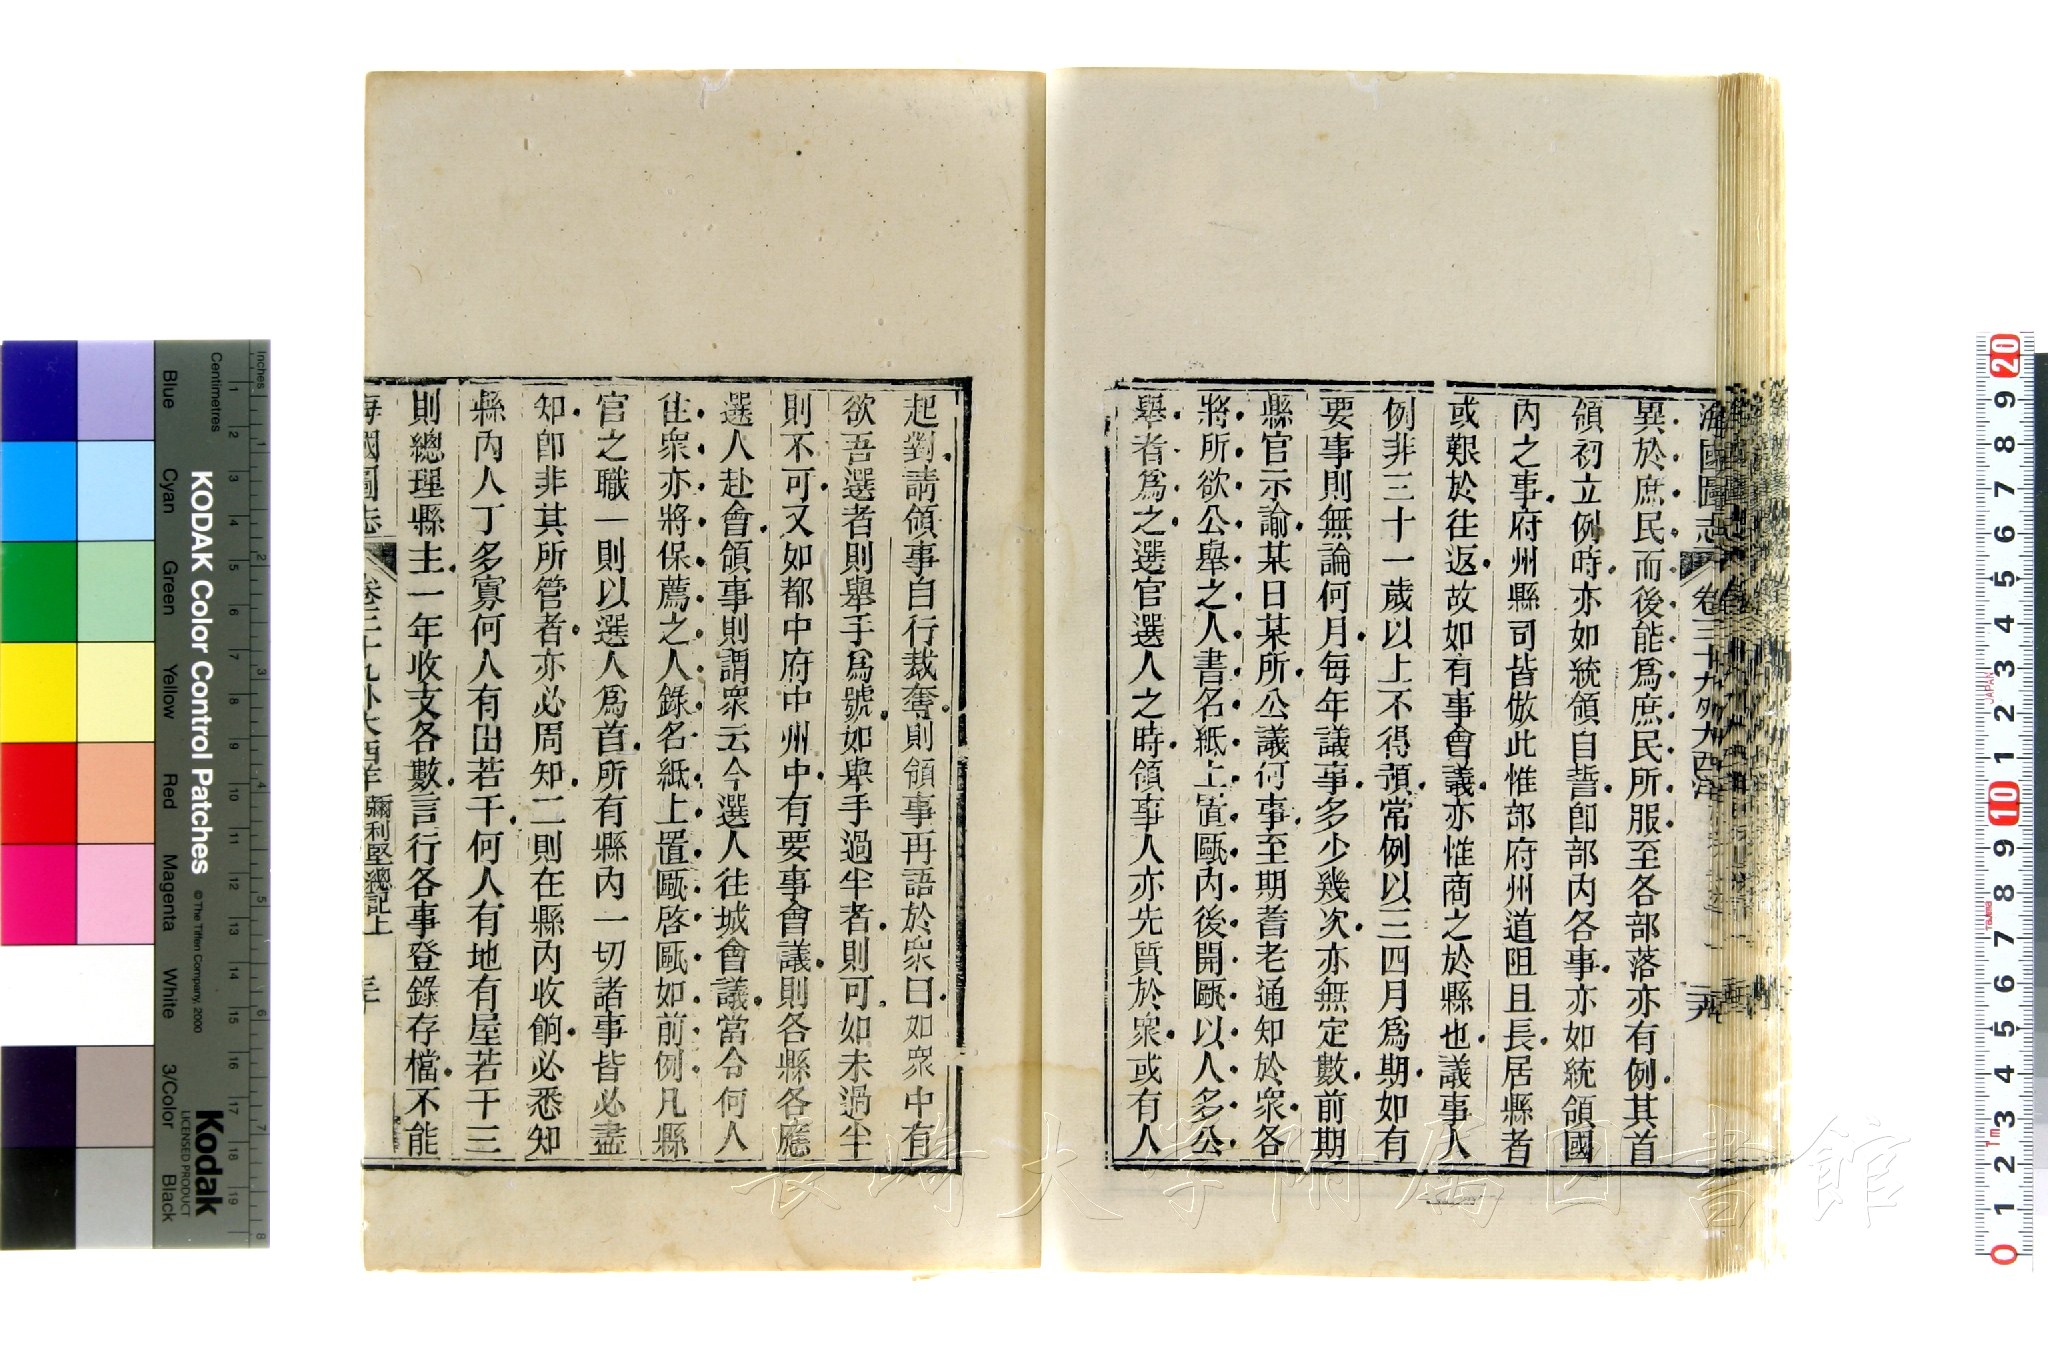 海國圖志 卷三十九外大西洋
異於庶民而後能爲庶民所服至各部落亦有例其首
領初立例時亦如統領自誓卽部內各事亦如統領國
內之事府州縣司皆倣此惟部府州道阻且長居縣者
或艱於往返故如有事會議亦惟商之於縣也議事人
例非三十一歲以上不得預常例以三四月爲期如有
要事則無論何月每年議事多少幾次亦無定數前期
縣官示諭某日某所公議何事至期耆老通知於衆各
將所欲公舉之人書名紙上置甌內後開甌以人多公
舉者爲之選官選人之時領事人亦先質於衆或有人
起對請領事自行裁奪則領事再語於衆曰如衆中有
欲吾選者則舉手爲號如舉手過半者則可如未過半
則不可又如都中府中州中有要事會議則各縣各應
選人赴會領事則謂衆云今選人往城會議當令何人
住衆亦將保薦之人錄名紙上置甌啓甌如前例凡縣
官之職一則以選人爲首所有縣內一切諸事皆必盡
知卽非其所管者亦必周知二則在縣內收餉必悉知
縣內人丁多寡何人有田若干何人有地有屋若干三
則總理縣主一年收支各數言行各事登錄存檔不能
海國圖志 卷三十九外大西洋 彌利堅總記上 三十
KODAK Color Control Patches
© The Tiffen Company, 2000
Kodak
LICENSED PRODUCT
Centimetres
Inches
Blue
Cyan
Green
Yellow
Red
Magenta
White
3/Color
Black
1 2 3 4 5 6 7 8 9 10 11 12 13 14 15 16 17 18 19
1 2 3 4 5 6 7 8
20 9 8 7 6 5 4 3 2 1 10 9 8 7 6 5 4 3 2 1 0
JAPAN
Tajima
長崎大学附属図書館